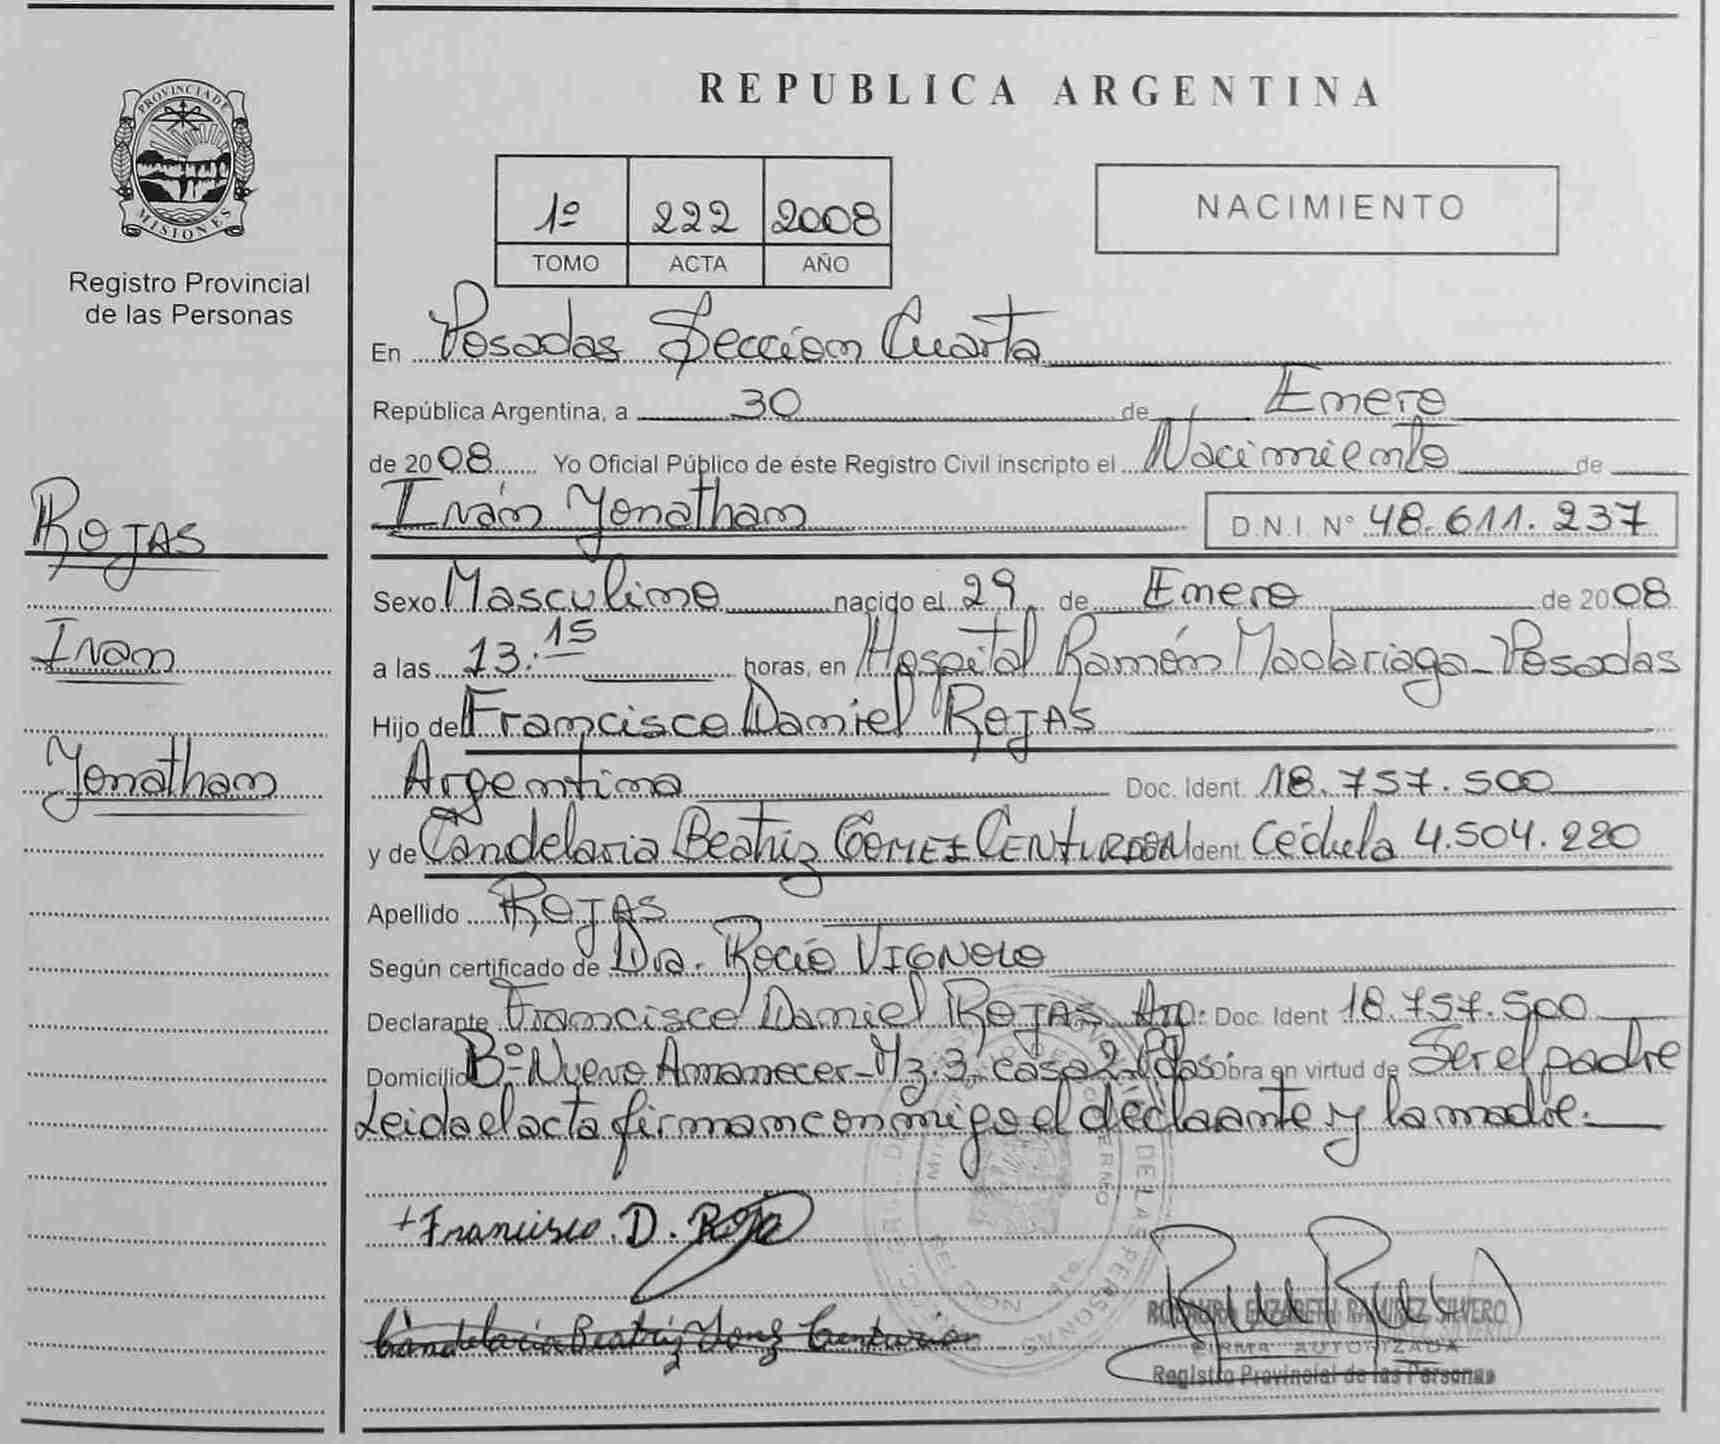 REPUBLICA ARGENTINA
PROVINCIA DE
MISIONES
Registro Provincial
de las Personas
1º 222 2008
TOMO ACTA AÑO
NACIMIENTO
En Posadas Sección Cuarta
República Argentina, a 30 de Enero
de 2008 Yo Oficial Público de éste Registro Civil inscripto el Nacimiento de
Iván Yonathan D.N.I. Nº 48.611.237
ROJAS
Ivan
Yonathan
Sexo Masculino nacido el 29 de Enero de 2008
a las 13:15 horas, en Hospital Ramón Madariaga - Posadas
Hijo de Francisco Daniel ROJAS
Argentina Doc. Ident. 18.757.500
y de Candelaria Beatriz GOMEZ CENTURION Ident. Cédula 4.504.220
Apellido ROJAS
Según certificado de Dra. Rocío VIGNOLO
Declarante Francisco Daniel ROJAS Arg. Doc. Ident 18.757.500
Domicilio Bº Nuevo Amanecer - Mz. 3, casa 2 - Pdas Obra en virtud de Ser el padre
Leida el acta firman conmigo el declarante y la madre.
Francisco. D. Roja
Candelaria Beatriz Centurion
ROSAURA ELIZABETH RAMIREZ SILVERO
FIRMA AUTORIZADA
Registro Provincial de las Personas